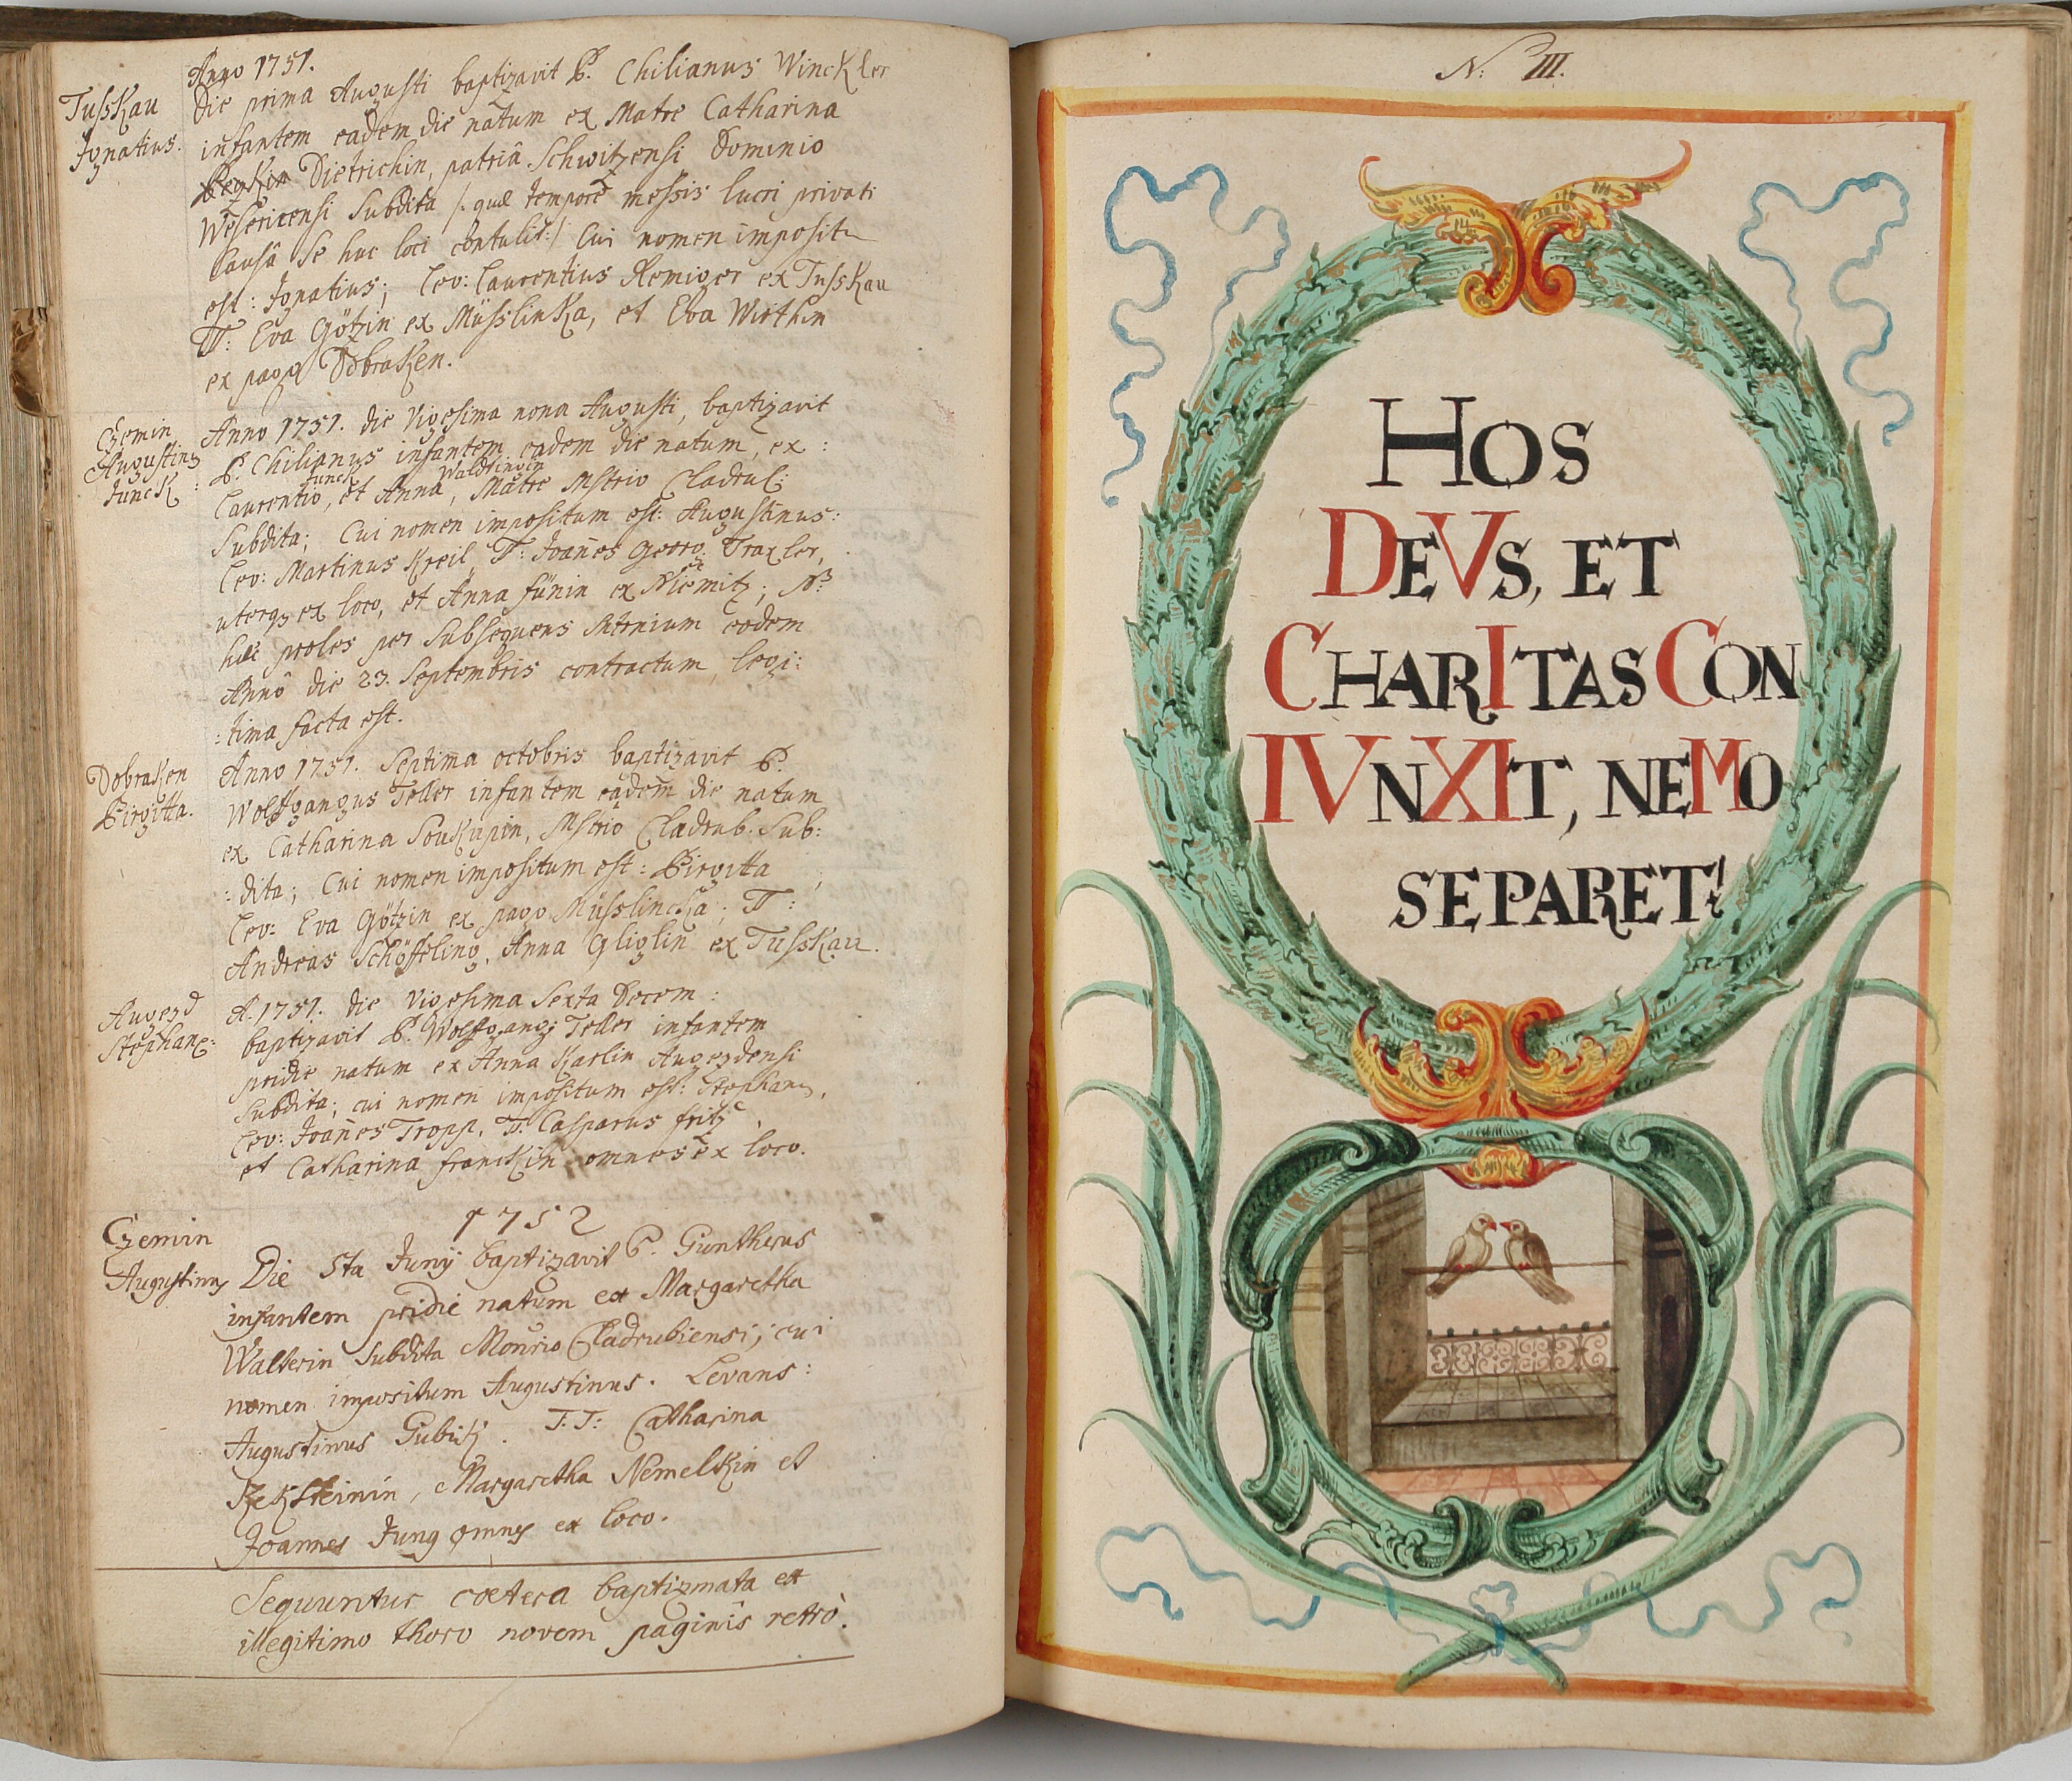 Anno 1751.
Tusskau
Ignatius.
Die prima Augusti baptizavit P. Chilianus Winckler
infantem eadem die natum ex Matre Catharina
Dietrichin, patriâ Schwitzensi Dominio
Weseritensi Subdita /: quæ tempore messis lucri privati
causâ se huc loci contulit :/ Cui nomen imposit:
est: Ignatius; Lev: Laurentius Remiger ex Tusskau
TT: Eva Götzin ex Müsslinka, et Eva Wirthin
ex pago Dobraken.
Czemin
Augustin9
Junck
Anno 1751. die Vigesima nona Augusti, baptizavit
P. Chilianus infantem eadem die natum, ex:
Junck Waldtingin
Laurentio, et Anna, Matre Mstrio Cladrub:
Subdita; Cui nomen impositum est: Augustinus:
Lev: Martinus Kreil, T: Joan̄es Georg: Traxler,
uterq3 ex loco, et Anna Fünin ex Niemitz; NB
hæc proles per subsequens Mtrnium eodem
Annô die 23. Septembris contractum, legi:
:tima facta est.
Dobraken
Birgitta.
Anno 1751. Septima octobris baptizavit P.
Wolffgangus Teller infantem eadem die natum
ex Catharina Soukupin, Mstrio Cladrub. Sub:
:dita; Cui nomen impositum est: Birgitta
Lev: Eva Götzin ex pago Müsslincka; TT:
Andreas Schöffeling, Anna Gliglin ex Tusskau.
Augezd
Stephan9:
A. 1751. die Vigesima Sexta Decem:
baptizavit P. Wolffgang9 Teller infantem
pridie natum ex Anna Karlin Augezdensi
Subdita; cui nomen impositum est: Stephan9,
Lev: Joan̄es Tropp, TT: Casparus Fritz
et Catharina Franckin omnes ex loco.
1752
Czemin
Augustinus
Die 5ta Junij baptizavit P. Guntherus
infantem pridie natum ex Margaretha
Walterin subdita Monrio Cladrubiensi; cui
nomen impositum Augustinus. Levans:
Augustinus Gubik. T.T: Catharina
Margaretha Nemelkin et
Joannes Jung omnes ex loco.
Sequuntur cœtera baptizmata ex
illegitimo thoro novem paginis retrò.
N: III.
HOS
DEVS, ET
CHARITAS CON
IVNXIT, NEMO
SEPARET!